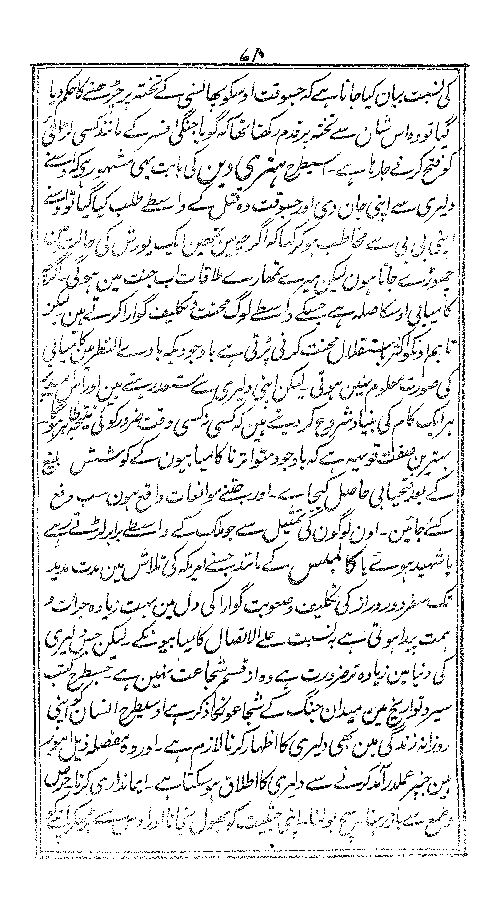 کی نسبت بیان کیا جاتا ہے کہ جسوقت اوسکو پھانسی کے تختہ پر چڑھنے کا حکم دیا
گیا تو وہ اس شان سے تختہ پر قدم رکھتا تھا کہ گویا جنگی افسر کے مانند کسی لڑائی
کو فتح کرنے جا رہا ہے ۔ اسیطرح ہنری وین کی بابت بھی مشہور ہے کہ اوسنے
دلیری سے اپنی جان دی اور جسوقت وہ قتل کے واسطے طلب کیا گیا تو اوسنے
اپنی بی بی سے مخاطب ہو کر کہا کہ اگرچہ مین تمھین ایک یورش کی حالت مین
چھوڑے جاتا ہون لیکن میرے تمھارے ملاقات اب جنت مین ہوگی ۔
کامیابی اوسکا صلہ ہے جسکے واسطے لوگ محنت و تکلیف گوارا کرتے ہین لیکن
تاہم اونکو اکثر باستقلال محنت کرنی پڑتی ہے باوجودیکہ بادے النظر مین کامیابی
کی صورت معلوم نہین ہوتی لیکن اپنی دلیری سے مستعد رہتے ہین اور اس امید پر
ہر ایک کام کی بنیاد شروع کر دیتے ہین کہ کسی نہ کسی وقت ضرور کوئی نتیجہ ظاہر ہوگا
بہترین صفت تو یہ ہے کہ باوجود متواتر ناکامیابیون کے کوشش بلیغ
کے بعد فتحیابی حاصل کیجائے ۔ اور جتنے موانعات واقع ہون سب دفع
کئے جائین ۔ اون لوگون کی تمثیل سے جو ملک کے واسطے برابر لڑتے رہے
یا شہید ہوئے یا کالمبس کے مانند جسنے امریکہ کی تلاش مین مدت مدید
تک سفر دور دراز کی تکلیف و صعوبت گوارا کی دل مین بہت زیادہ جرات و
ہمت پیدا ہوتی ہے بہ نسبت علے الاتصال کامیابیونکے لیکن جس دلیری
کی دنیا مین زیادہ تر ضرورت ہے وہ از قسم شجاعت نہین ہے جسطرح کتب
سیر و تواریخ مین میدان جنگ کے شجاعونکا ذکر ہے اوسیطرح انسان کو اپنی
روزانہ زندگی مین بھی دلیری کا اظہار کرنا لازم ہے ۔ اور وہ مفصلہ ذیل امور
ہین جنپر عملدرآمد کرنے سے دلیری کا اطلاق ہو سکتا ہے ۔ ایمانداری کرنا حرص
وطمع سے باز رہنا سچ بولنا ۔ اپنی حیثیت کو بھول نجانا اور